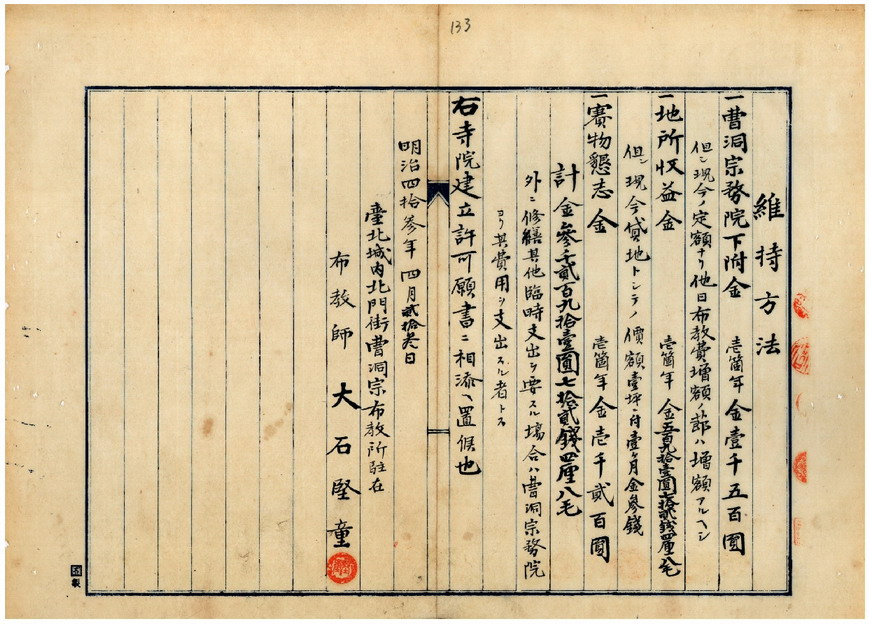 133
維持方法
一曹洞宗務院下附金 壱箇年金壹千五百圓
但シ現今ノ定額ナリ他日布教費増額ノ節ハ増額アルヘシ
一地所収益金 壱箇年金五百九拾壹圓七拾貳錢四厘八毛
但シ現今貸地トシテノ價額壹坪ニ付壹ヶ月金參錢
一賽物懇志金 壱箇年金壱千貳百圓
計金參千貳百九拾壹圓七拾貳錢四厘八毛
外ニ修繕其他臨時支出ヲ要スル場合ハ曹洞宗務院
ヨリ其費用ヲ支出スル者トス
右寺院建立許可願書ニ相添ヘ置候也
明治四拾參年四月貳拾 日
臺北城内北門街曹洞宗布教所駐在
布教師 大石堅童
製